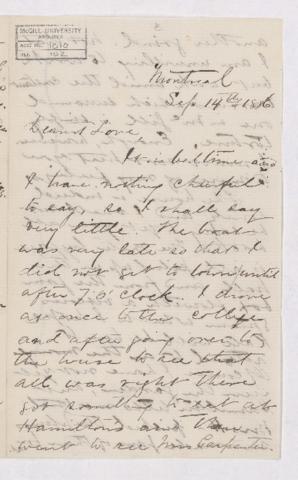 McGILL UNIVERSITY
ARCHIVES
ACC. NO. 1010
REF.
Montreal
Sep. 14th 1886
Dearest Love,
It is bedtime and
I have nothing cheerful
to say, so I shall say
very little. The boat
was very late so that I
did not get to town until
after 7 o'clock. I drove
at once to the college
and after going over to
the house to see that
all was right there
got something to eat at
Hamiltons and then
went to see Mrs Carpenter.